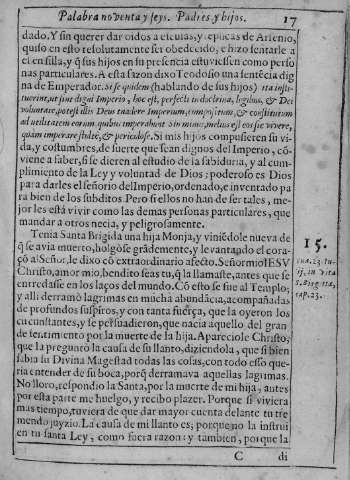 Palabra noventa y seys. Padres, y hijos. 17
dado. Y sin querer dar oidos a escusas, y replicas de Arsenio,
quiso en esto resolutamente ser obedecido, e hizo sentarle a
el en silla, y q̃ sus hijos en su presencia estuviessen como perso
nas particulares. A esta sazon dixo Teodosio una sentẽcia dig
na de Emperador. Si se quidem (hablando de sus hijos) ita insti-
tuerint, ut sint digni Imperio, hoc est, perfecti in doctrina, legibus, & Dei
voluntate, potest illis Deus tradere Imperium, compositum, & constitutum
ad utilitatem eorum, quibus imperabunt. Sin minus, melius est eos sic vivere,
quàm imperare stultè, & periculose. Si mis hijos compusieren su vi-
da, y costumbres, de suerte que sean dignos del Imperio, cõ-
viene a saber, si se dieren al estudio de la sabiduria, y al cum-
plimiento de la Ley y voluntad de Dios; poderoso es Dios
para darles el señorio del Imperio, ordenado, e inventado pa
ra bien de los subditos. Pero si ellos no han de ser tales, me-
jor les está vivir como las demas personas particulares, que
mandar a otros necia, y peligrosamente.
Tenia Santa Brigida una hija Monja, y viniẽdole nueva de
q̃ se avia muerto, holgóse grãdemente, y levantando el cora-
çõ al Señor, le dixo cõ extraordinario afecto. Señor mio IESV
Christo, amor mio, bendito seas tu, q̃ la llamaste, antes que se
entredasse en los laços del mundo. Cõ esto se fue al Templo;
y alli derramó lagrimas en mucha abundãcia, acompañadas
de profundos suspiros, y con tanta fuerça, que la oyeron los
circunstantes, y se persuadieron, que nacia aquello del gran
de sentimiento por la muerte de la hija. Apareciole Christo,
que la preguntó la causa de su llanto, diziendola, que si bien
sabia su Divina Magestad todas las cosas, con todo esso que-
ria entender de su boca, porq̃ derramava aquellas lagrimas.
No lloro, respondio la Santa, por la muerte de mi hija, antes
por esta parte me huelgo, y recibo plazer. Porque si viviera
mas tiempo, tuviera de que dar mayor cuenta delante tu tre
mendo juyzio. La causa de mi llanto es; porque no la instrui
en tu santa Ley, como fuera razon: y tambien, porque la
C di
15.